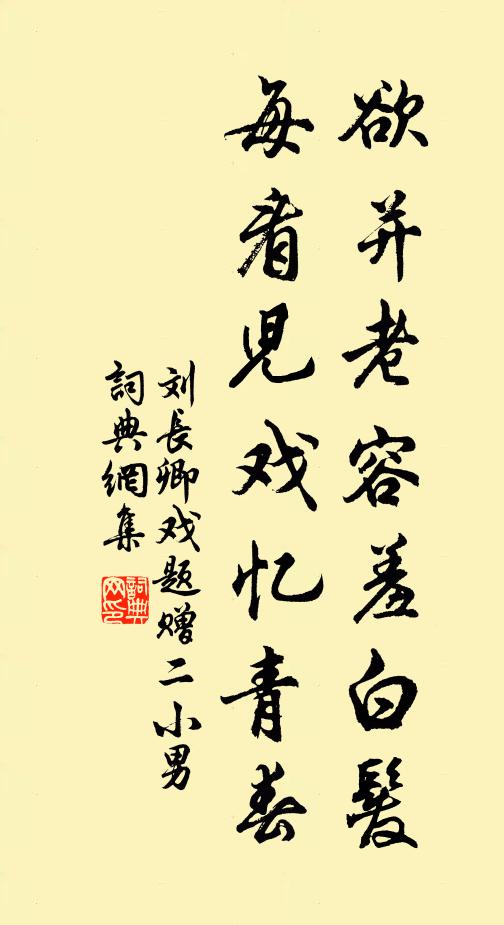 欲并老容羞白髮
每看児戏忆青春
刘長卿戏题赠二小男
詞典網集